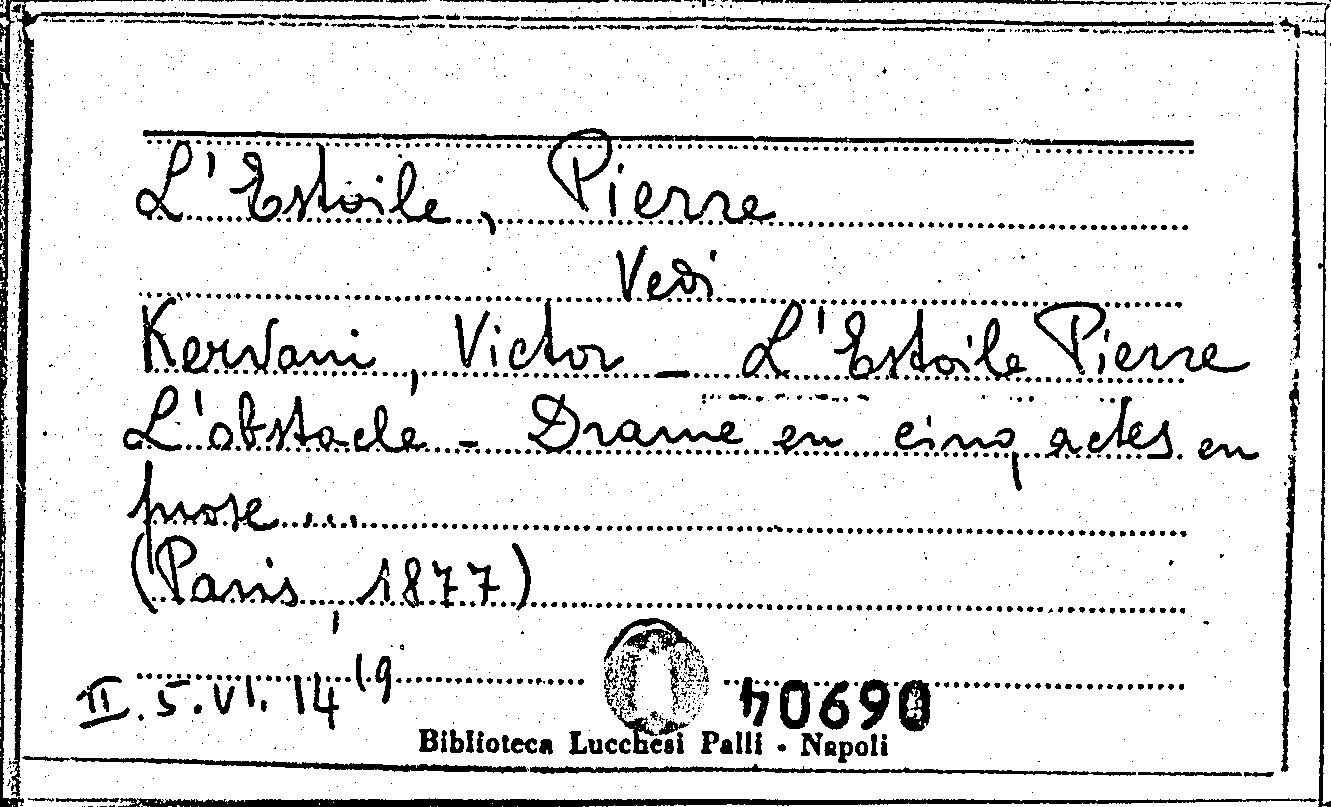 L'Estoile, Pierre
Vedi
Kervani, Victor - L'Estoile Pierre
L'obstacle - Drame en cinq actes en
prose....
(Paris, 1877)
II. 5. VI. 14 19
40690
Biblioteca Lucchesi Palli - Napoli